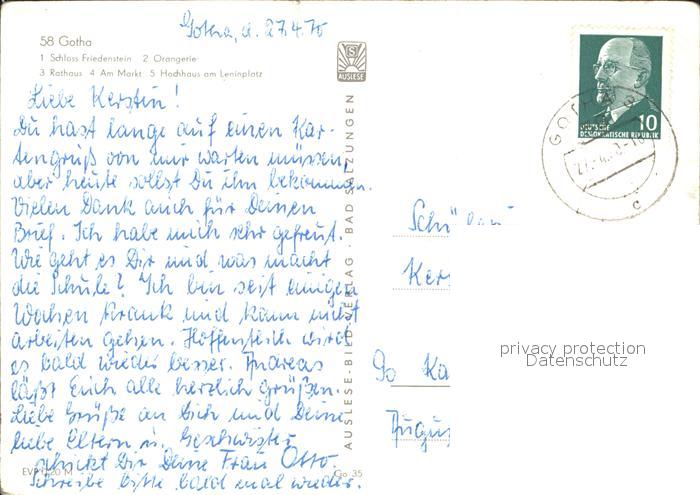 Gotha, d. 27.4.70
58 Gotha
1 Schloss Friedenstein 2 Orangerie
3 Rathaus 4 Am Markt 5 Hochhaus am Leninplatz
S
AUSLESE
10
DEUTSCHE
DEMOKRATISCHE REPUBLIK
GOTHA
Liebe Kerstin!
Du hast lange auf einen Kar-
tengruß von mir warten müssen,
aber heute sollst Du ihn bekommen.
Vielen Dank auch für Deinen
Brief. Ich habe mich sehr gefreut.
Wie geht es Dir und was macht
die Schule? Ich bin seit einigen
Wochen krank und kann nicht
arbeiten gehen. Hoffentlich wird
es bald wieder besser. Andreas
läßt Euch alle herzlich grüßen.
Liebe Grüße an Dich und Deine
lieben Eltern u. Geschwister
schickt Dir Deine Frau Otto.
Schreibe bitte bald mal wieder.
AUSLESE-BILD-VERLAG · BAD SALZUNGEN
Schü
Kers
Ka
Augus
privacy protection
Datenschutz
Go 35